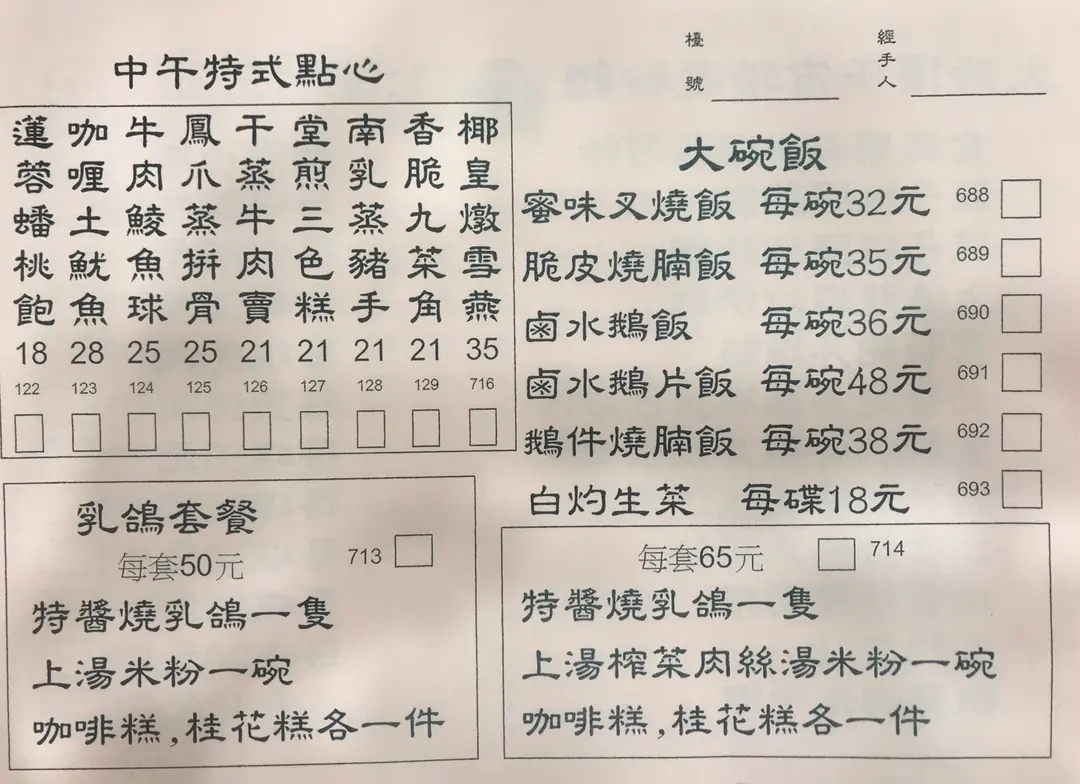 檯號
經手人
中午特式點心
蓮蓉蟠桃飽 18 122
咖喱土魷魚 28 123
牛肉鯪魚球 25 124
鳳爪蒸拼骨 25 125
干蒸牛肉賣 21 126
堂煎三色糕 21 127
南乳蒸豬手 21 128
香脆九菜角 21 129
椰皇燉雪燕 35 716
大碗飯
蜜味叉燒飯 每碗32元 688
脆皮燒腩飯 每碗35元 689
鹵水鵝飯 每碗36元 690
鹵水鵝片飯 每碗48元 691
鵝件燒腩飯 每碗38元 692
白灼生菜 每碟18元 693
乳鴿套餐
每套50元 713
特醬燒乳鴿一隻
上湯米粉一碗
咖啡糕,桂花糕各一件
每套65元 714
特醬燒乳鴿一隻
上湯榨菜肉絲湯米粉一碗
咖啡糕,桂花糕各一件